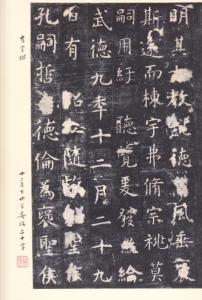 明其教懿德風垂
斯遠而棟宇弗脩宗祧莫
嗣用紆聽覽爰發綸
武德九年十二月二十九
日有隨故侯
孔嗣哲德倫為褒聖侯